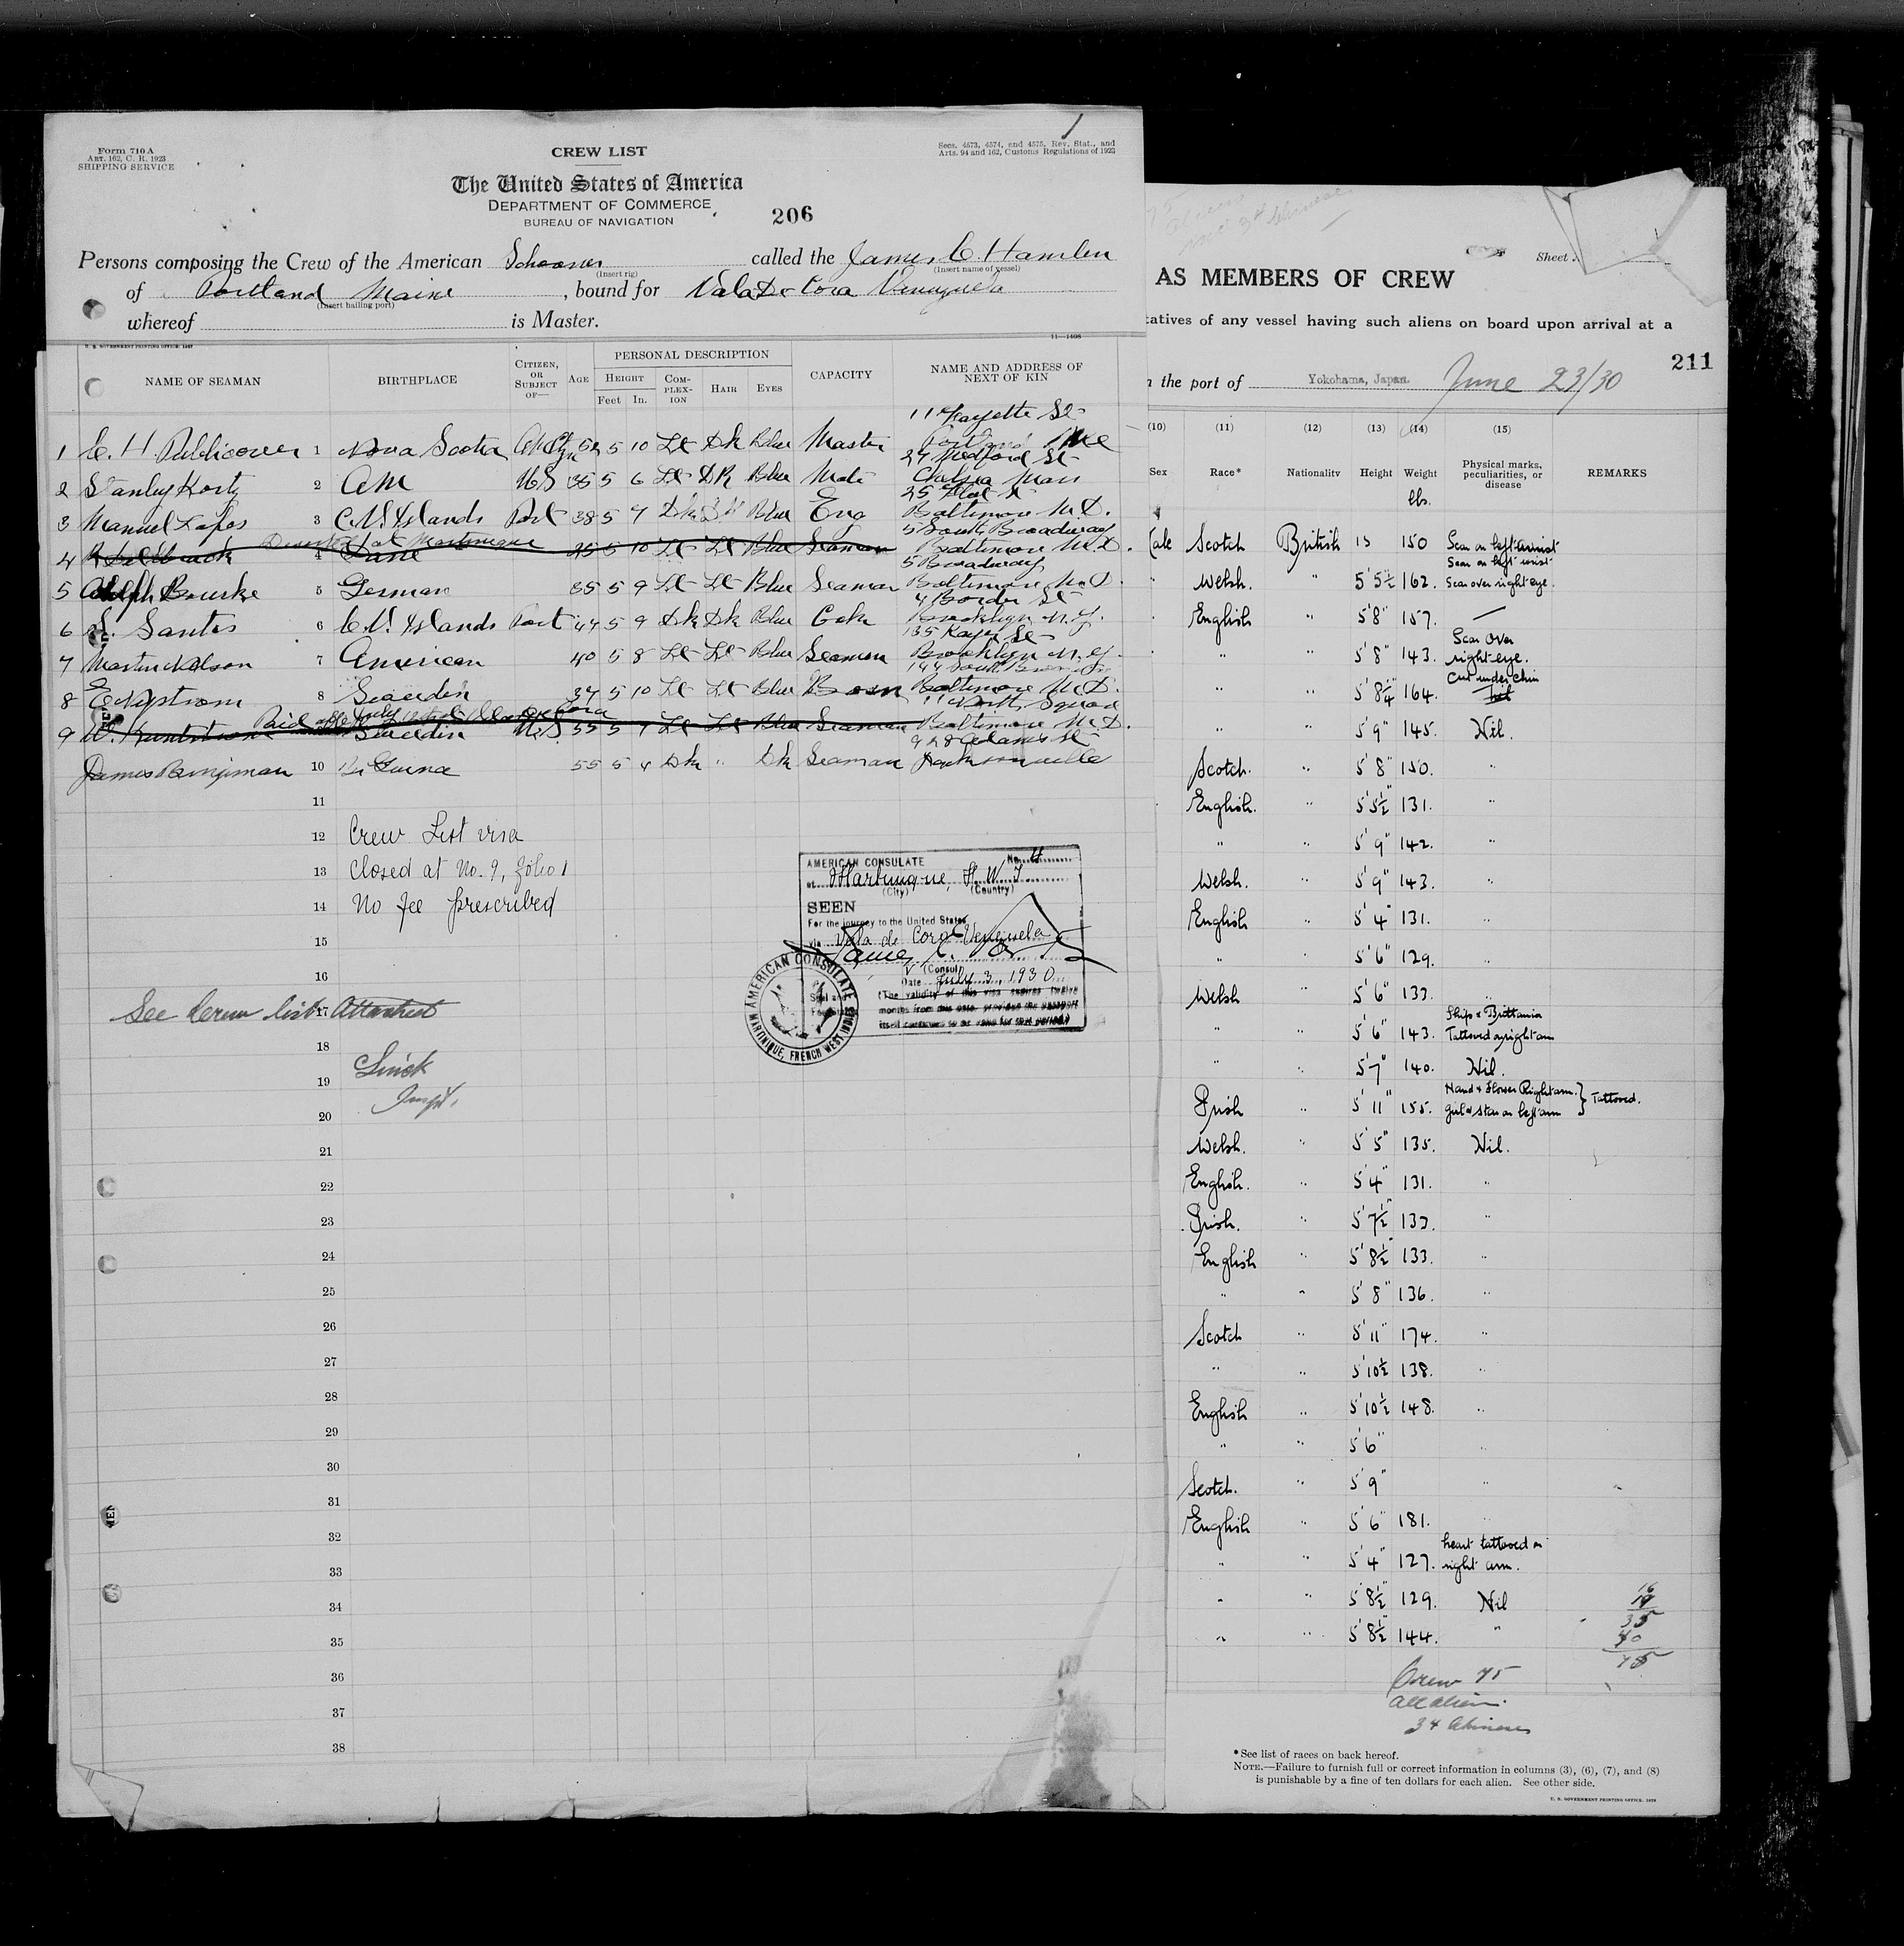 1
Form 710 A
ART. 162, C. R. 1923
SHIPPING SERVICE
CREW LIST
Secs. 4573, 4574, and 4575, Rev. Stat., and
Arts. 94 and 162, Customs Regulations of 1923
The United States of America
DEPARTMENT OF COMMERCE
BUREAU OF NAVIGATION
206
Persons composing the Crew of the American Schooner called the James C. Hamlen
(Insert rig) (Insert name of vessel)
of Portland Maine, bound for Vela De Cora
(Insert hailing port)
whereof is Master.
U. S. GOVERNMENT PRINTING OFFICE: 1927
11—1408
NAME OF SEAMAN BIRTHPLACE CITIZEN, OR SUBJECT OF— AGE PERSONAL DESCRIPTION CAPACITY NAME AND ADDRESS OF NEXT OF KIN
HEIGHT COMPLEXION HAIR EYES
Feet In.
11 Fayette St
1 C. H. Publicover 1 Nova Scotia 52 5 10 Lt Dk Blue Master Portland Me
27 Medford St
2 Stanley Kortz 2 AM US 35 5 6 Lt DK Blue Mate Chelsea Mass
25
3 Manuel Lopes 3 C.V. Islands Port 38 5 7 Dk Blue Eng Baltimore M.D.
5 South Broadway
Deserted at Martinique
4 4 25 5 10 Lt Lt Blue Seaman Baltimore M.D.
5 Broadway
5 Adolph Bourke 5 German 35 5 9 Lt Lt Blue Seaman Baltimore M.D.
4 Border St
6 S. Santos 6 C.V. Islands Port 44 5 9 Dk Dk Blue Cook Brooklyn N.Y.
135 St
7 Martin Nelson 7 American 40 5 8 Lt Lt Blue Seaman Brooklyn N.Y.
144 South
8 E Nystrom 8 Sweden 37 5 10 Lt Lt Blue Bosn Baltimore M.D.
11 North Square
Paid off
9 9 Sweden U.S 55 5 7 Lt Lt Blue Seaman Baltimore M.D.
928 Adams St
James Benjiman 10 Br Guina 55 5 4 Dk " Dk Seaman Jacksonville
11
12 Crew List visa
13 Closed at No. 9, folio 1
14 No fee prescribed
15
16
See crew list 17 Attached
18
19
Linck
Inspt.
20
21
22
23
24
25
26
27
28
29
30
31
32
33
34
35
36
37
38
AMERICAN CONSULATE No. 4
at Martinique, F. W. I.
(City) (Country)
SEEN
For the journey to the United States
via Vela de Coro Venezuela
V (Consul)
Date July 3, 1930
(The validity of this visa expires twelve
months from this date, provided the passport
itself continues to be valid for that period.)
AMERICAN CONSULATE
MARTINIQUE, FRENCH WEST INDIES
Sheet
AS MEMBERS OF CREW
tatives of any vessel having such aliens on board upon arrival at a
211
the port of Yokohama, Japan. June 23/30
(10) (11) (12) (13) (14) (15)
Sex Race* Nationality Height Weight Physical marks, peculiarities, or disease REMARKS
lbs.
Scotch British 150 Scar on left wrist
Scar on left wrist
" Welsh. " 5'5½" 162. Scar over right eye.
English " 5'8" 157. —
" " 5'8" 143. Scar over right eye.
" " 5'8¼" 164. Cut under chin
" " 5'9" 145. Nil.
Scotch. " 5'8" 150. "
English. " 5'5½" 131. "
" " 5'9" 142. "
Welsh. " 5'9" 143. "
English " 5'4" 131. "
" " 5'6" 129. "
Welsh " 5'6" 133. "
Ship & Brittania
" " 5'6" 143. Tattooed on right arm
" " 5'7" 140. Nil.
Hand & Flower Right arm.
Irish " 5'11" 155. girl & star on left arm } Tattooed.
Welsh. " 5'5" 135. Nil.
English. " 5'4" 131. "
Irish. " 5'7½" 133. "
English " 5'8½" 133. "
" " 5'8" 136. "
Scotch " 5'11" 174. "
" " 5'10½" 138. "
English " 5'10½" 148. "
" " 5'6" "
Scotch. " 5'9" "
English " 5'6" 181. "
" " 5'4" 127. heart tattooed on right arm.
" " 5'8½" 129. Nil
" " 5'8½" 144. "
16
19
35
40
75
Crew 75
all alien.
34 Chinese
*See list of races on back hereof.
NOTE.—Failure to furnish full or correct information in columns (3), (6), (7), and (8)
is punishable by a fine of ten dollars for each alien. See other side.
U. S. GOVERNMENT PRINTING OFFICE: 1929